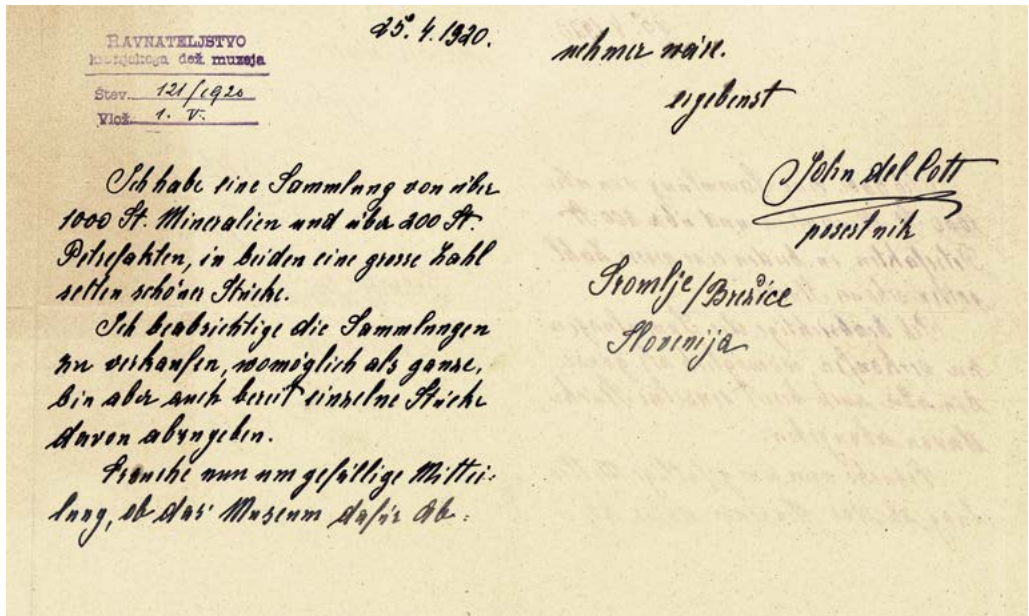 25. 4. 1920.
RAVNATELJSTVO
kranjskega dež. muzeja
Štev. 121/1920
Vlož. 1. V.
Ich habe eine Sammlung von über
1000 St. Mineralien und über 200 St.
Petrefakten, in beiden eine grosse Zahl
selten schöner Stücke.
Ich beabsichtige die Sammlungen
zu verkaufen, womöglich als ganze,
bin aber auch bereit einzelne Stücke
davon abzugeben.
Ersuche nun um gefällige Mittei-
lung, ob das Museum dafür Ab-
nehmer wäre.
ergebenst
John del Cott
posestnik
Sromlje/Brežice
Slovenija